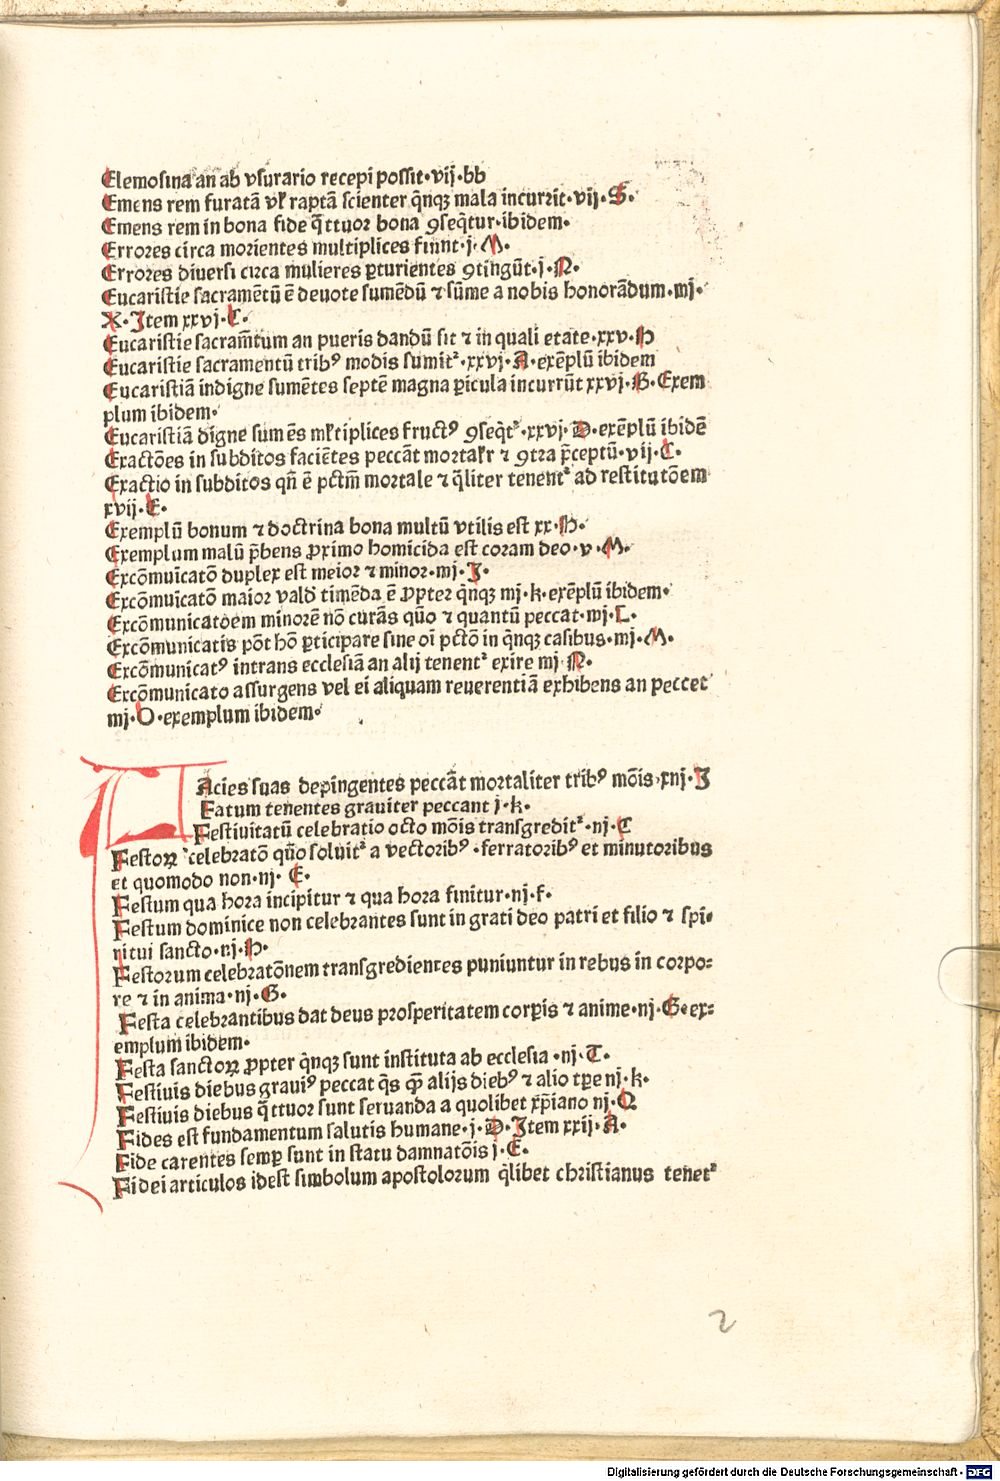 Elemosina an ab vsurario recepi possit·vij·bb
Emens rem furatā vƚ raptā scienter q̄nqꝫ mala incurrit·vij·S·
Emens rem in bona fide q̄ttuor bona ꝯseq̄tur·ibidem·
Errores circa morientes multiplices fiunt·j·M·
Errores diuersi circa mulieres ꝑturientes ꝯtingūt·j·N·
Eucaristie sacramētū ē deuote sumēdū ⁊ sūme a nobis honorādum·mj·
X·Item xxvj·C·
Eucaristie sacram̄tum an pueris dandū sit ⁊ in quali etate·xxv·H
Eucaristie sacramentū tribꝰ modis sumit᷑·xxvj·A·exēplū ibidem
Eucaristiā indigne sumētes septē magna ꝑicula incurrūt xxvj·B·Exem
plum ibidem·
Eucaristiā digne sumēs mƚtiplices fructꝰ ꝯseq̄t᷑·xxvj·D·exēplū ibidē
Exactōes in subditos faciētes peccāt mortaƚr ⁊ ꝯtra p̄ceptū·vij·C·
Exactio in subditos qn̄ ē pctm̄ mortale ⁊ q̄liter tenent᷑ ad restitutōem
xvij·E·
Exemplū bonum ⁊ doctrina bona multū vtilis est xx·H·
Exemplum malū p̄bens ꝓximo homicida est coram deo·v·M·
Excōmuīcatō duplex est meior ⁊ minor·mj·J·
Excōmuīcatō maior vald timēda ē ꝓpter q̄nqꝫ mj·k·exēplū ibidem·
Excōmunicatoem minorē nō curās quō ⁊ quantū peccat·mj·L·
Excōmunicatis pōt hō ꝑticipare sine oī pctō in q̄nqꝫ casibus·mj·M·
Excōmunicatꝰ intrans ecclesiā an alij tenent᷑ exire mj·N·
Excōmunicato assurgens vel ei aliquam reuerentiā exhibens an peccet
mj·O·exemplum ibidem·
Facies suas depingentes peccāt mortaliter tribꝰ mōis·xnj·J
Fatum tenentes grauiter peccant j·k·
Festiuitatū celebratio octo mōis transgredit᷑·nj·C
Festoꝝ celebratō quō soluit᷑ a vectoribꝰ·ferratoribꝰ et minutoribus
et quomodo non·nj· E·
Festum qua hora incipitur ⁊ qua hora finitur·nj·f·
Festum dominice non celebrantes sunt in grati deo patri et filio ⁊ spi⸗
ritui sancto·nj·H·
Festorum celebratōnem transgredientes puniuntur in rebus in corpo⸗
re ⁊ in anima·nj·G·
Festa celebrantibus dat deus prosperitatem corꝑis ⁊ anime·nj·G·ex⸗
emplum ibidem·
Festa sanctoꝝ ꝓpter q̄nqꝫ sunt instituta ab ecclesia·nj·T·
Festiuis diebus grauiꝰ peccat q̄s qꝫ̄ alijs diebꝰ ⁊ alio tꝑe nj·k·
Festiuis diebus q̄ttuor sunt seruanda a quolibet xp̄iano nj·Q
Fides est fundamentum salutis humane·j·D·Item xxij·A·
Fide carentes semꝑ sunt in statu damnatōis j·E·
Fidei articulos idest simbolum apostolorum q̄libet christianus tenet᷑
2
Digitalisierung gefördert durch die Deutsche Forschungsgemeinschaft - DFG